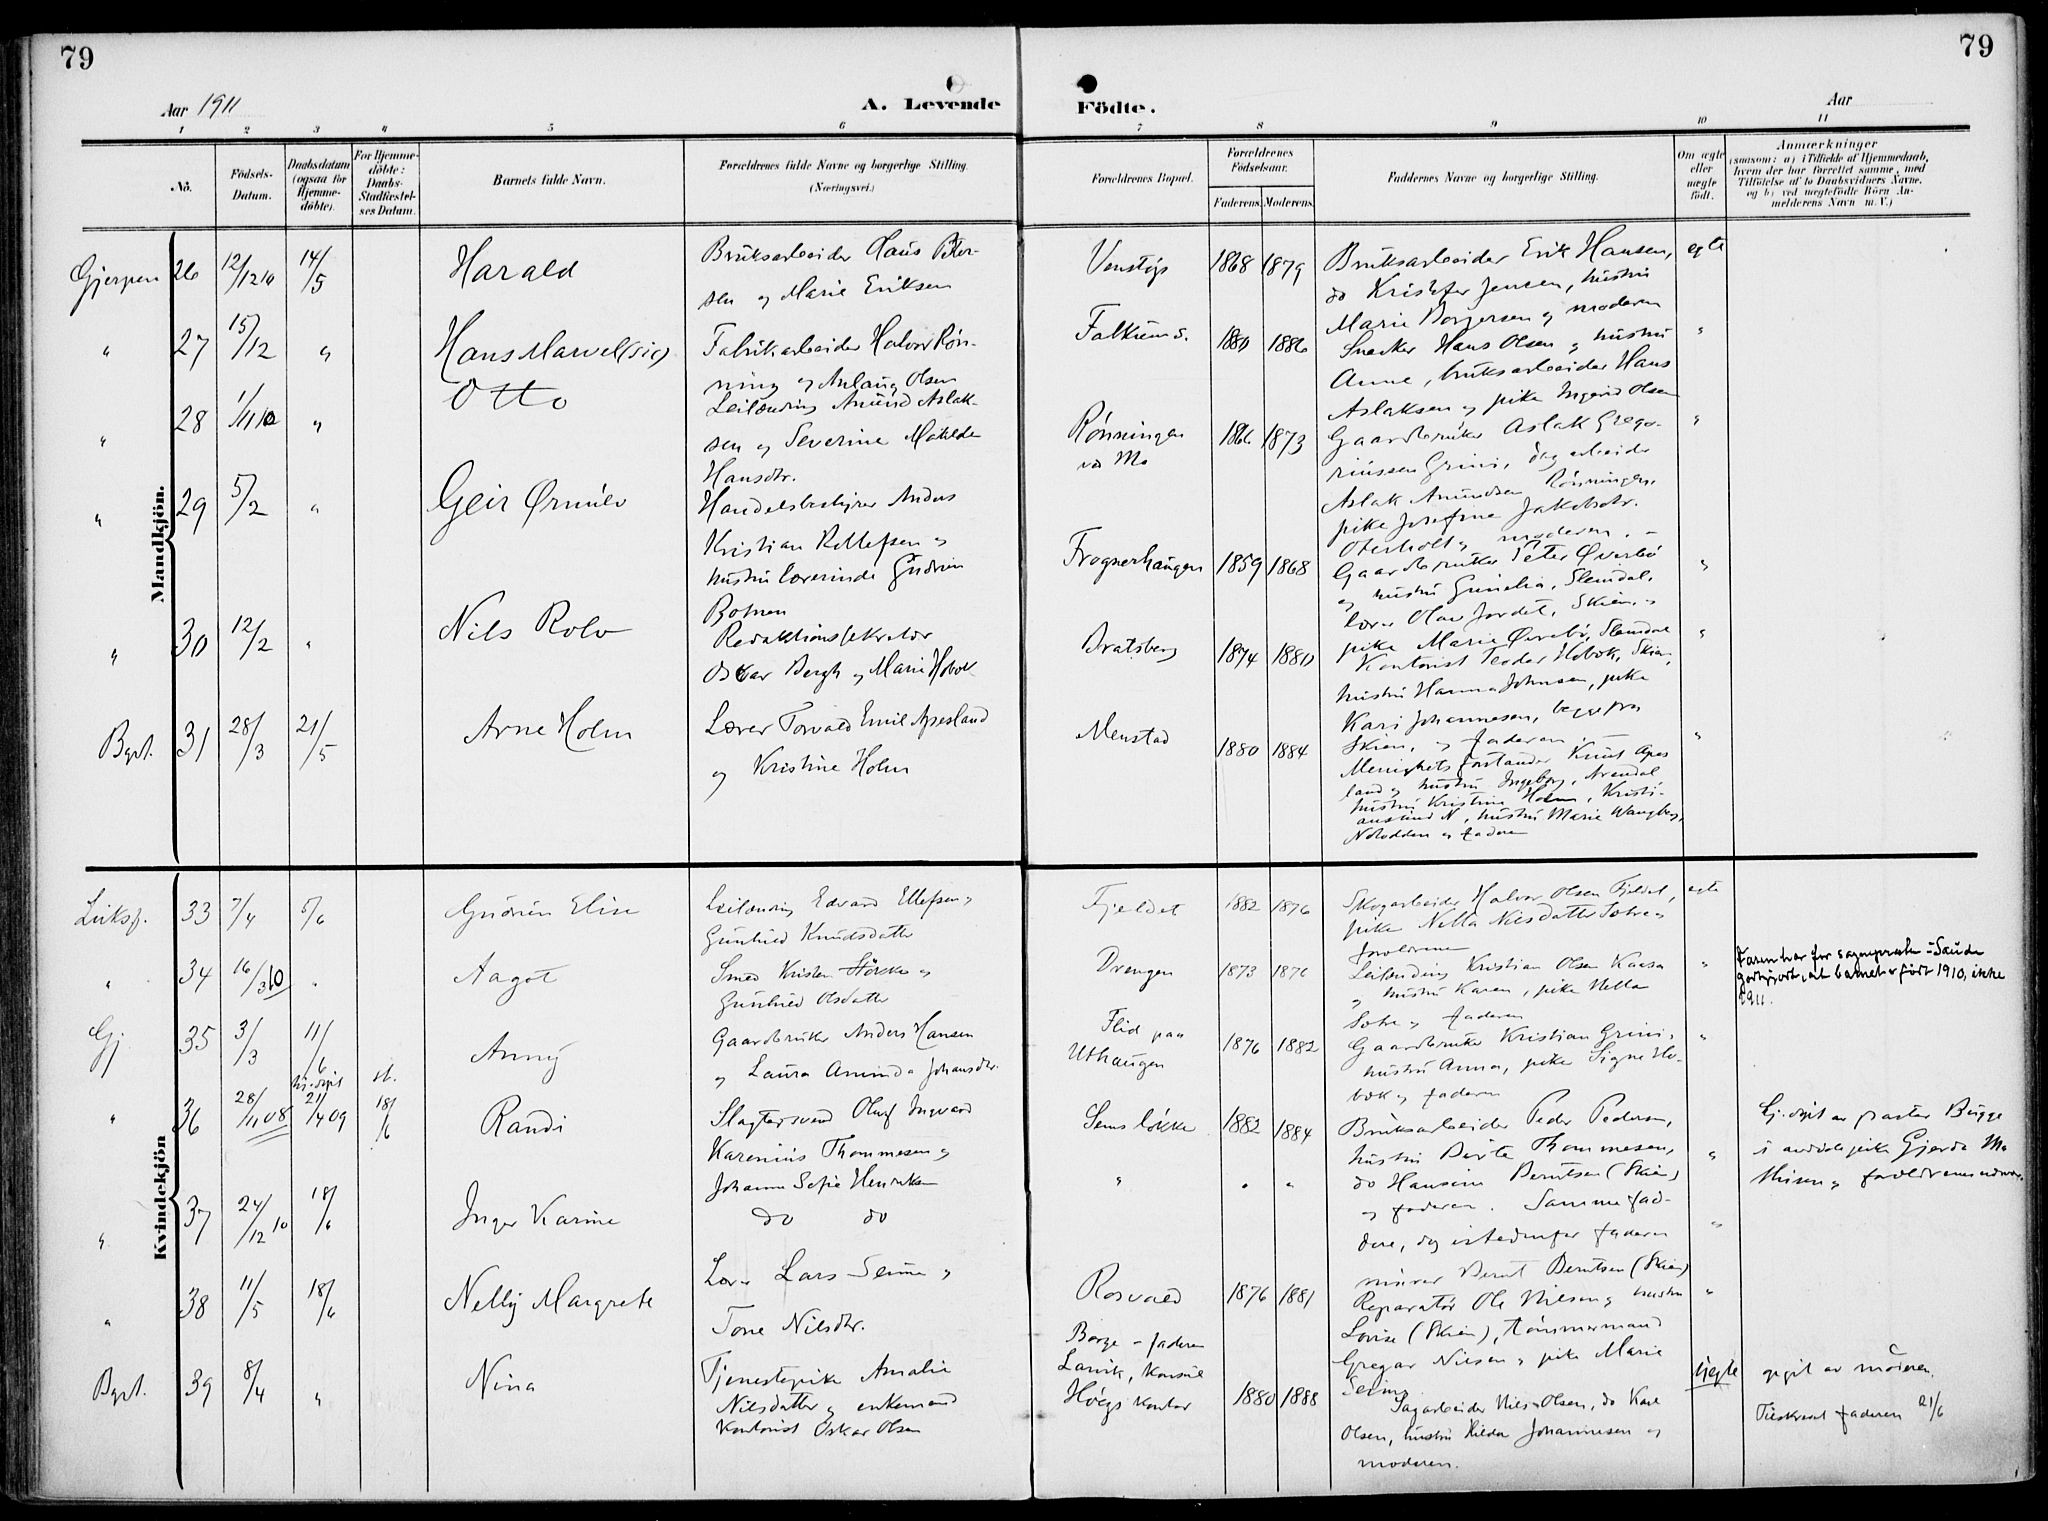 79
79
Aar 1911
A. Levende
Födte.
Aar
1 2 3 4 5 6 7 8 9 10 11
No.
Födsels-
Datum.
Daabsdatum
(ogsaa for
Hjemme-
döbte).
For Hjemme-
döbte:
Daabs-
Stadfæstel-
ses Datum.
Barnets fulde Navn.
Forældrenes fulde Navne og borgerlige Stilling.
(Næringsvei.)
Forældrenes Bopæl.
Forældrenes
Födselsaar.
Faderens. Moderens.
Faddernes Navne og borgerlige Stilling.
Om ægte
eller
uægte
födt.
Anmærkninger
(saasom: a) i Tilfælde af Hjemmedaab,
hvem der har forrettet samme, med
Tilföielse af to Daabsvidners Navne,
og b) ved uægtefödte Börn An-
melderens Navn m. V.)
Mandkjön.
Gjerpen 26 12/12 10 14/5 Harald
Bruksarbeider Hans Peter-
sen og Marie Eriksen
Venstøp 1868 1879
Bruksarbeider Erik Hansen,
do Kristofer Jensen, hustru
Marie Borgersen og moderen
egte
" 27 15/12 " Hans Marvel (sic)
Otto
Fabrikarbeider Halvor Røn-
ning og Anlaug Olsen
Falkum s. 1880 1886
Snedker Hans Olsen og hustru
Anne, bruksarbeider Hans
Aslaksen og pike Ingerid Olsen
"
" 28 1/11 10 "
Leilænding Amund Aslak-
sen og Severine Matilde
Hansdtr.
Rønningen
v/ Mo
1866 1873
Gaardbruker Aslak Grego-
riussen Grini, dagarbeider
Aslak Amundsen Rønningen,
pike Josefine Jakobsdtr.
Oterholt og moderen. -
"
" 29 5/2 " Geir Ørnulv
Handelsbestyrer Anders
Kristian Rollefsen og
hustru lærerinde Gudrun
Botnen
Frognerhaugen 1859 1868
Gaardbruker Peter Øverbø
og hustru Gunelia, Slemdal,
lærer Olav Jordet, Skien, og
pike Marie Øverbø, Slemdal
"
" 30 12/2 " Nils Rolv
Redaktionssekretær
Oskar Bergh og Marie Hobok
Bratsberg 1874 1880
Kontorist Teodor Hobok, Skien,
hustru Hanna Johnsen, pike
Kari Johannesen, begge fra
Skien, og faderen. -
"
Bgst. 31 28/3 21/5 Arne Holm
Lærer Torvald Emil Apesland
og Kristine Holm
Menstad 1880 1884
Menighetsforstander Knut Apes
land og hustru Ingeborg, Arendal
hustru Kristine Holm, Kristi-
ansund N, hustru Marie Wangberg,
Notodden og faderen
"
Kvindekjön
Luksf. 33 7/4 5/6 Gudrun Elise
Leilænding Edvard Ellefsen og
Gunhild Knudsdatter
Fjeldet 1882 1876
Skogarbeider Halvor Olsen Fjeldet,
pike Nella Nilsdatter Sotve og
forældrene
egte
" 34 16/3 10 " Aagot
Smed Kristen og
Gunhild Olsdatter
Drengen 1873 1876
Leilending Kristian Olsen Kaasa
og hustru Karen, pike Nella
Sotve og faderen
"
Faren har for sognepræsten i Sande
godtgjort, at barnet er født 1910, ikke
1911.
Gj. 35 3/3 11/6 Anny
Gaardbruker Anders Hansen
og Laura Aminda Johansdtr.
Flid paa
Uthaugen
1876 1882
Gaardbruker Kristian Grini,
hustru Anna, pike Signe Ho-
bok og faderen
"
" 36 28/11 08 hj.døpt 21/4 09 st. 18/6 Randi
Slagtersvend Oluf Ingvard
Karenius Thommesen og
Johanne Sofie Henriksen
Semsløkka 1882 1884
Bruksarbeider Peder Pedersen,
hustru Dorte Thommesen,
do Hansine Berntsen (Skien)
og faderen.
"
Hj.døpt av pastor Bugge
i pike Gjerda Ma
thisen og forældrenes
" 37 24/12 10 18/6 Inger Karine
do do
" " "
Samme fad-
dere, dog istedenfor faderen
murer Bernt Berntsen (Skien)
"
" 38 11/5 18/6 Nelly Margrete
Lærer Lars Seime og
Tone Nilsdtr.
Rosvald 1876 1881
Reparatør Ole Nilsen og hustru
Lovise (Skien), tømmermand
Gregar Nilsen og pike Marie
Seime
"
Bgst. 39 8/4 " Nina
Tjenestepike Amalie
Nilsdatter og enkemand
kontorist Oskar Olsen
Borge - faderen
Larvik, Konsul
Høegs kontor
1880 1888
Sagarbeider Nils Olsen, do Karl
Olsen, hustru Hilda Johannesen og
moderen.
uegte
opgit av moderen.
Tilskrevet faderen 21/6